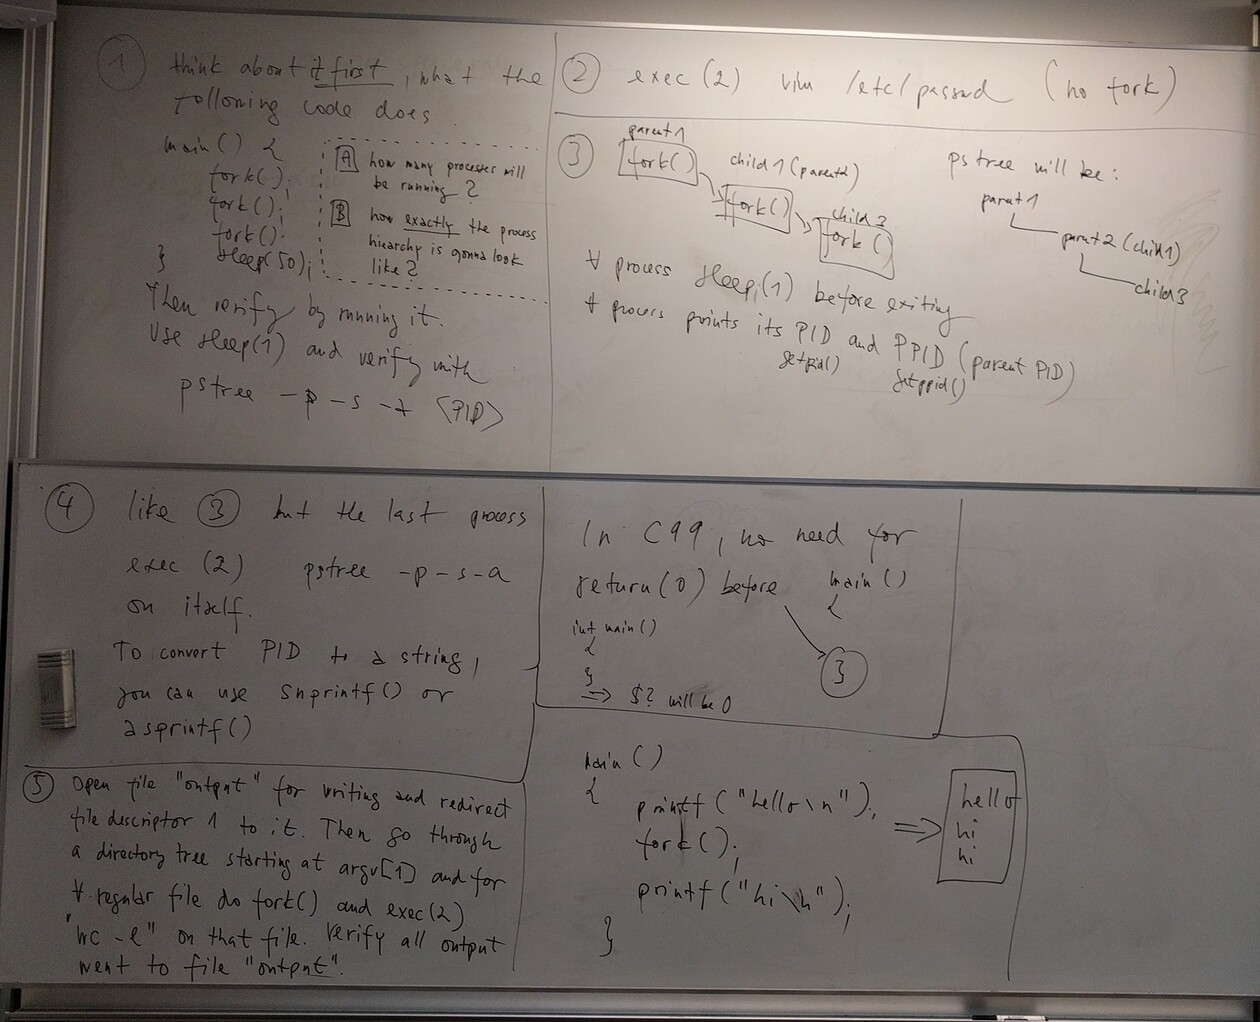 1 think about it first, what the
following code does
main() {
fork();
fork();
fork();
sleep(50);
}
A how many processes will
be running?
B how exactly the process
hierarchy is gonna look
like?
Then verify by running it.
Use sleep(1) and verify with
pstree -p -s -t <PID>
2 exec(2) vim /etc/passwd (no fork)
3 parent1
fork()
child 1 (parent2)
fork()
child 3
fork()
pstree will be:
parent1
parent2 (child1)
child3
∀ process sleep(1) before exiting
∀ process prints its PID and PPID (parent PID)
getpid()
getppid()
4 like 3 but the last process
exec(2) pstree -p -s -a
on itself.
To convert PID to a string,
you can use snprintf() or
asprintf()
5 Open file "output" for writing and redirect
file descriptor 1 to it. Then go through
a directory tree starting at argv[1] and for
∀ regular file do fork() and exec(2)
"wc -l" on that file. Verify all output
went to file "output".
In C99, no need for
return(0) before
main()
{
3
int main()
{
}
=> $? will be 0
main()
{
printf("hello\n");
fork();
printf("hi\n");
}
=> hello
hi
hi